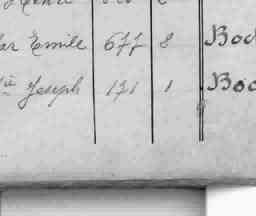 ar Emile 677 8 Boc
in Joseph 171 1 Boc